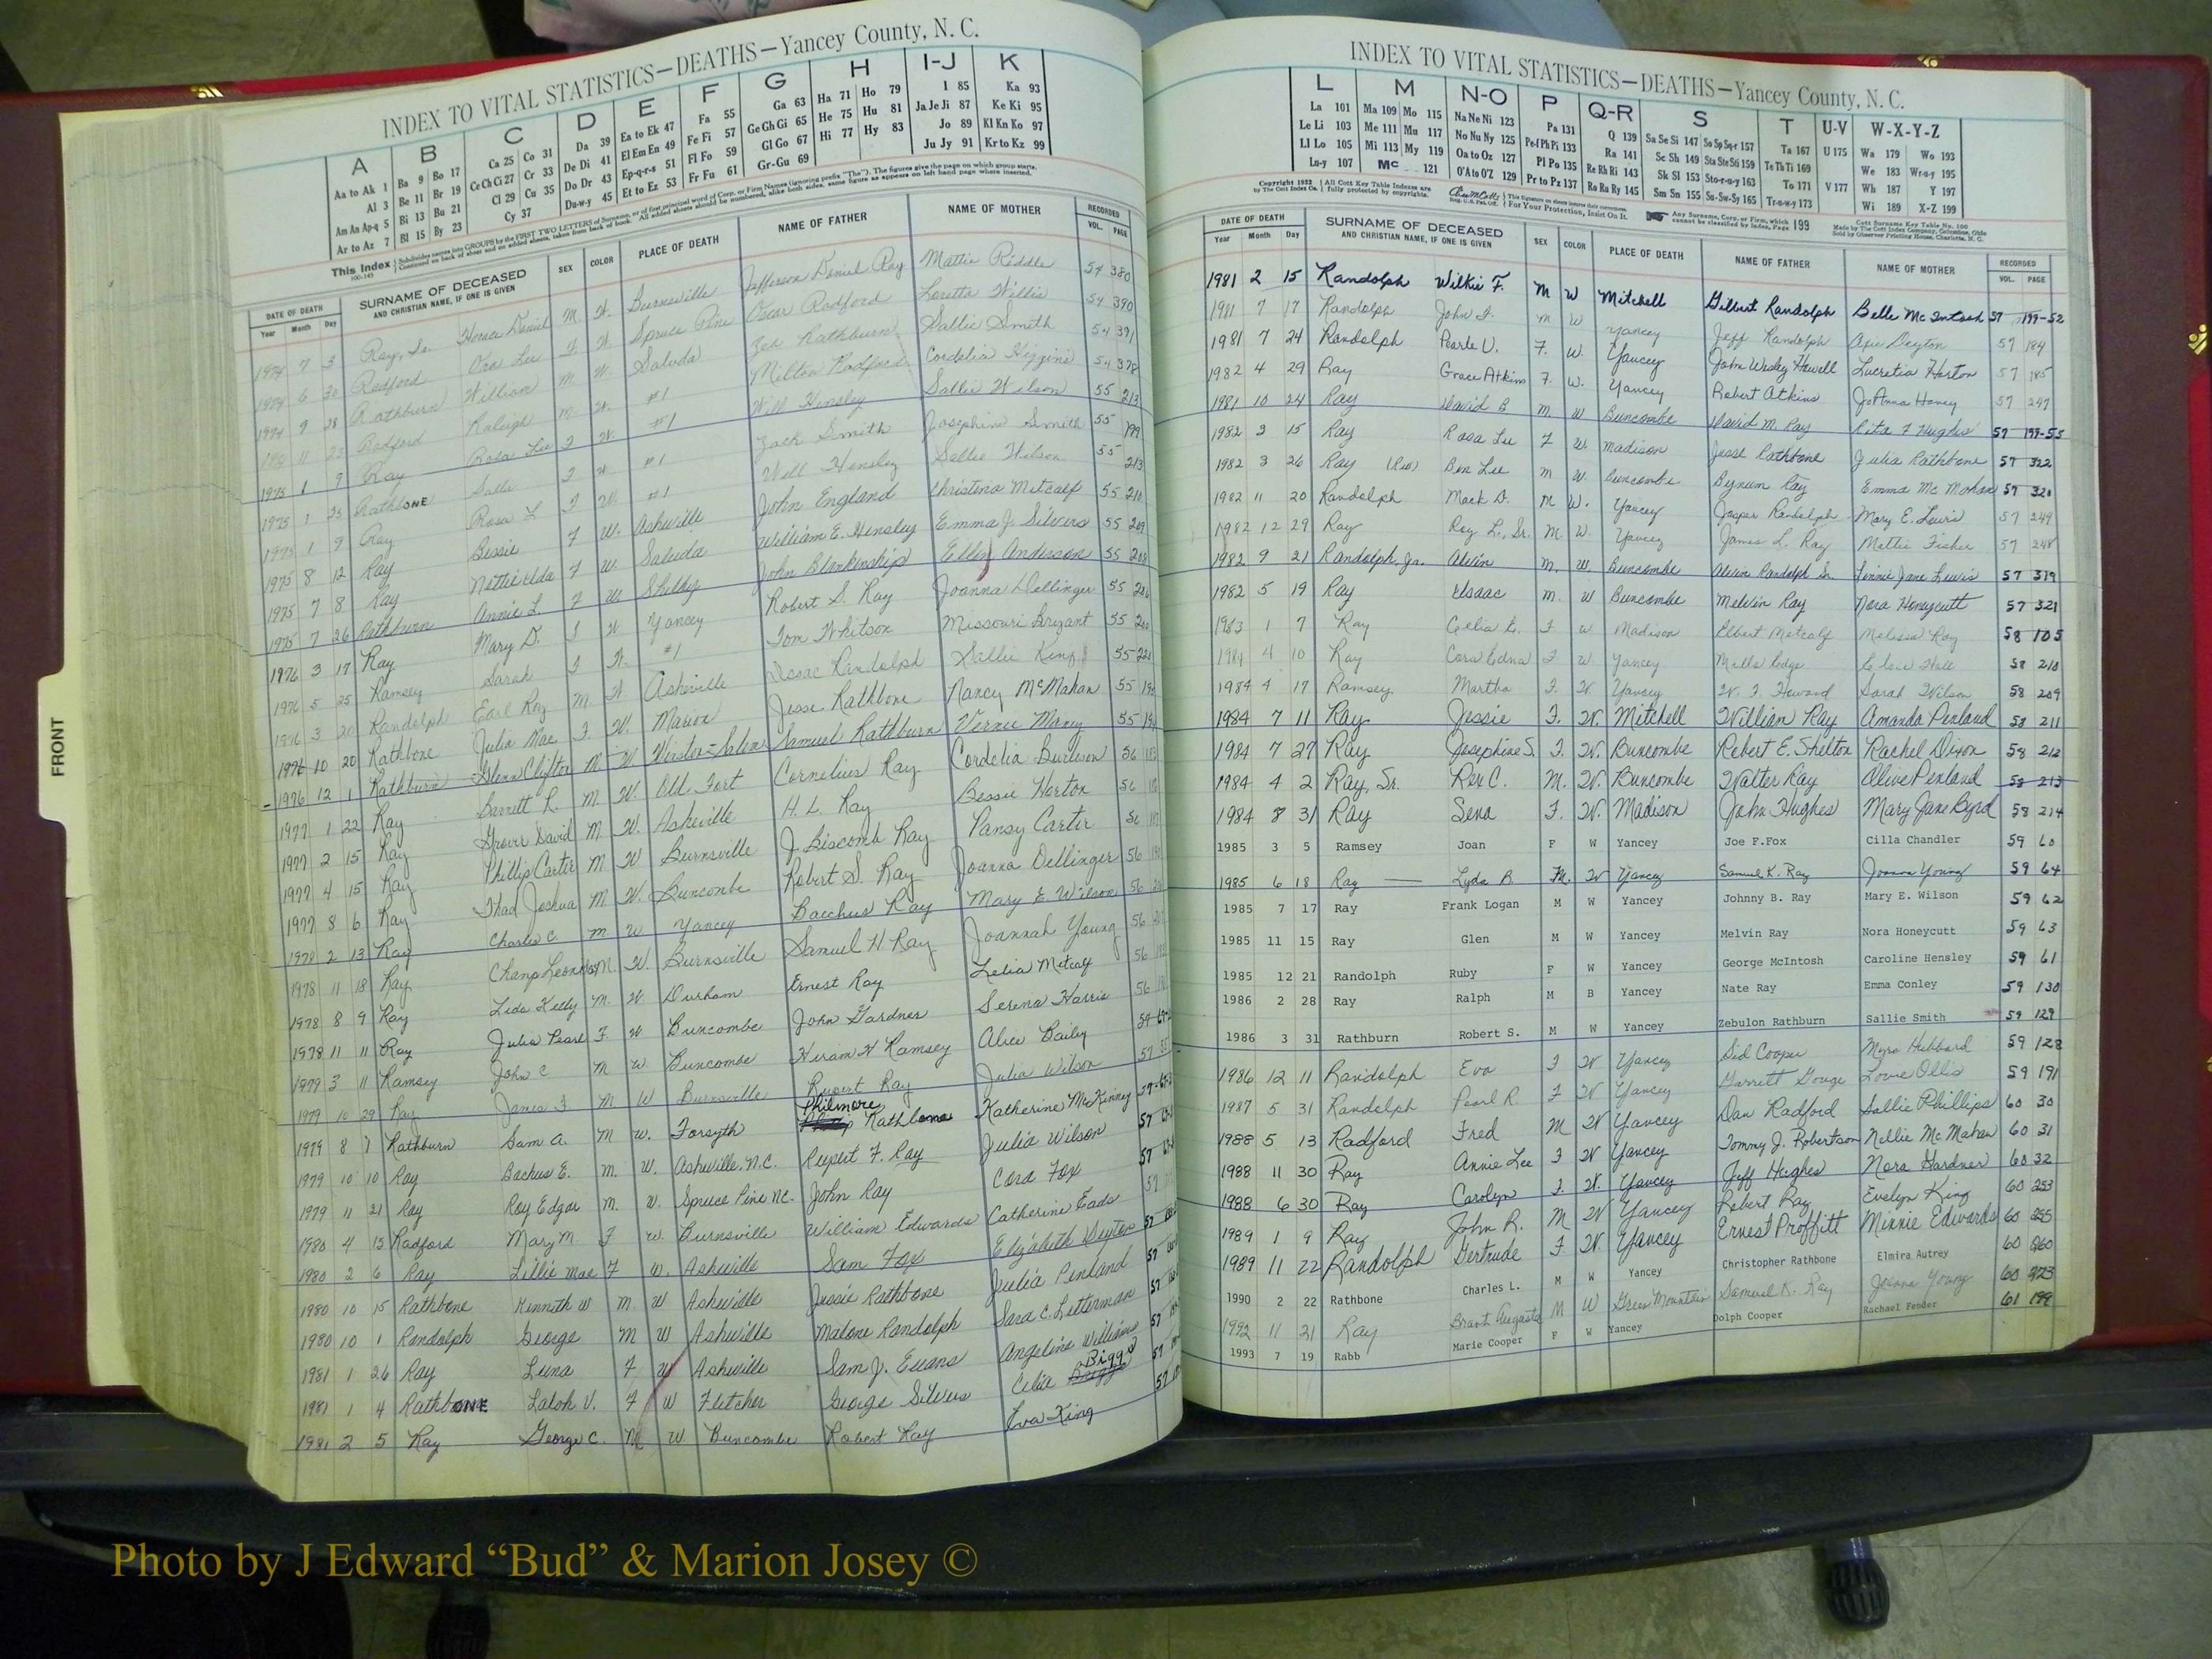 INDEX TO VITAL STATISTICS—DEATHS—Yancey County, N. C.
A B C D E F G H I-J K
Aa to Ak 1 Ba 9 Bo 17 Ca 25 Co 31 Da 39 Ea to Ek 47 Fa 55 Ga 63 Ha 71 Ho 79 I 85 Ka 93
Al 3 Be 11 Br 19 Ce Ch Ci 27 Cr 33 De Di 41 El Em En 49 Fe Fi 57 Ge Gh Gi 65 He 75 Hu 81 Ja Je Ji 87 Ke Ki 95
Am An Ap-q 5 Bi 13 Bu 21 Cl 29 Cu 35 Do Dr 43 Ep-q-r-s 51 Fl Fo 59 Gl Go 67 Hi 77 Hy 83 Jo 89 Kl Kn Ko 97
Ar to Az 7 Bl 15 By 23 Cy 37 Du-w-y 45 Et to Ez 53 Fr Fu 61 Gr-Gu 69 Ju Jy 91 Kr to Kz 99
This Index Subdivides names into GROUPS by the FIRST TWO LETTERS of Surname, or of first principal word of Corp. or Firm Names (ignoring prefix "The"). The figures give the page on which group starts.
100-145 Continued on back of sheet and on added sheets, taken from back of book. All added sheets should be numbered, alike both sides, same figure as appears on left hand page where inserted.
DATE OF DEATH SURNAME OF DECEASED SEX COLOR PLACE OF DEATH NAME OF FATHER NAME OF MOTHER RECORDED
Year Month Day AND CHRISTIAN NAME, IF ONE IS GIVEN VOL. PAGE
1974 7 3 Ray, Sr. Horace Daniel M. W. Burnsville Jefferson Daniel Ray Mattie Riddle 54 380
1974 6 30 Radford Ora Lee F W. Spruce Pine Oscar Radford Loretta Willis 54 390
1974 9 28 Rathburn William M. W. Saluda Zeb Rathburn Sallie Smith 54 391
11 23 Radford Raleigh M. W. #1 Milton Radford Cordelia Higgins 54 378
1975 1 9 Ray Rosa Lee F W. #1 Will Hensley Sallie Wilson 55 213
1975 1 25 RathbONE Salle F W #1 Zack Smith Josephine Smith 55 199
1975 1 9 Ray Rosa L F W. #1 Will Hensley Sallie Wilson 55 213
1975 8 12 Ray Bessie F W. Asheville John England Christina Metcalf 55 210
1975 7 8 Ray Nettie Elda F W. Saluda William E. Hensley Emma J. Silvers 55 209
1975 7 26 Rathburn Annie L. F W Shelby John Blankenship Ellen Anderson 55 208
1976 3 17 Ray Mary D. F W Yancey Robert S. Ray Joanna Dellinger 55
1976 5 25 Ramsey Sarah F W. #1 Tom Whitson Missouri Bryant 55
1976 3 20 Randolph Earl Roy M. W Asheville Isaac Randolph Sallie King 55
1976 10 20 Rathbone Julia Mae F. W. Marion Jesse Rathbone Nancy McMahan 55
1976 12 1 Rathburn Glenn Clifton M W Winston-Salem Samuel Rathburn Vernie Maney 55
1977 1 22 Ray Garrett R. M. W. Old Fort Cornelius Ray Cordelia Burleson 56
1977 2 15 Ray Grover David M W. Asheville H. L. Ray Bessie Horton 56
1977 4 15 Ray Phillip Carter M W Burnsville J. Biscomb Ray Pansy Carter 56
1977 8 6 Ray Thad Joshua M W. Buncombe Robert S. Ray Joanna Dellinger 56
1978 2 13 Ray Charlie C. M W Yancey Bacchus Ray Mary E Wilson 56
1978 11 18 Ray Champ Leonidas M. W. Burnsville Samuel H Ray Joannah Young 56
1978 8 9 Ray Lida Kelly M. W. Durham Ernest Ray Lelia Metcalf 56
1978 11 11 Ray Julia Pearl F. W Buncombe John Gardner Serena Harris 56
1979 3 11 Ramsey John C M W Buncombe Hiram H Ramsey Alice Baily
1979 10 29 Ray James F M W Burnsville Rupert Ray Julia Wilson 57
1979 8 7 Rathburn Sam A. M W. Forsyth Philmore Rathbone Katherine McKinney 57
1979 10 10 Ray Bachus E. M. W. Asheville, N.C. Rupert F. Ray Julia Wilson 57
1979 11 21 Ray Roy Edgar M. W. Spruce Pine N.C. John Ray Cora Fox 57
1980 4 15 Radford Mary M. F W. Burnsville William Edwards Catherine Eads 57
1980 2 6 Ray Lillie Mae F W. Asheville Sam Fox Elizabeth Deyton 57
1980 10 15 Rathbone Kenneth W M. W Asheville Jessie Rathbone Julia Penland 57
1980 10 1 Randolph George M W Asheville Malone Randolph Sara C. Letterman 57
1981 1 26 Ray Luna F W Asheville Sam J. Evans Angeline Williams 57
1981 1 4 RathbONE Laloh V. F W Fletcher George Silvers Celia Biggs 57
1981 2 5 Ray George C. M W Buncombe Robert Ray Eva King 57
FRONT
INDEX TO VITAL STATISTICS—DEATHS—Yancey County, N. C.
L M N-O P Q-R S T U-V W-X-Y-Z
La 101 Ma 109 Mo 115 Na Ne Ni 123 Pa 131 Q 139 Sa Se Si 147 So Sp Sq-r 157 Ta 167 U 175 Wa 179 Wo 193
Le Li 103 Me 111 Mu 117 No Nu Ny 125 Pe-f Ph Pi 133 Ra 141 Sc Sh 149 Sta Ste Sti 159 Te Th Ti 169 We 183 Wr-u-y 195
Ll Lo 105 Mi 113 My 119 Oa to Oz 127 Pl Po 135 Re Rh Ri 143 Sk Sl 153 Sto-r-u-y 163 To 171 V 177 Wh 187 Y 197
Lu-y 107 Mc 121 O'A to O'Z 129 Pr to Pz 137 Ro Ru Ry 145 Sm Sn 155 Su-Sw-Sy 165 Tr-u-w-y 173 Wi 189 X-Z 199
Copyright 1922 by The Cott Index Co. All Cott Key Table Indexes are fully protected by copyrights. For Your Protection, Insist On It. Any Surname, Corp. or Firm, which cannot be classified by Index, Page 199
Cott Surname Key Table No. 100 Made by The Cott Index Company, Columbus, Ohio Sold by Observer Printing House, Charlotte, N. C.
DATE OF DEATH SURNAME OF DECEASED SEX COLOR PLACE OF DEATH NAME OF FATHER NAME OF MOTHER RECORDED
Year Month Day AND CHRISTIAN NAME, IF ONE IS GIVEN VOL. PAGE
1981 2 15 Randolph Wilkie F. M W Mitchell Gilbert Randolph Belle McIntosh 57 199-52
1981 7 17 Randolph John F. M W Yancey Jeff Randolph Deyton 57 184
1981 7 24 Randolph Pearle V. F. W. Yancey John Wesley Howell Lucretia Horton 57 185
1982 4 29 Ray Grace Atkins F. W. Yancey Robert Atkins JoAnna Honey 57 247
1981 10 24 Ray David B M. W Buncombe David M. Ray Rita F Hughes 57 199-55
1982 3 15 Ray Rosa Lee F W. Madison Jesse Rathbone Julia Rathbone 57 322
1982 3 26 Ray (Rev) Ben Lee M W. Buncombe Bynum Ray Emma McMahan 57 320
1982 11 20 Randolph Mack D. M W. Yancey Jasper Randolph Mary E. Lewis 57 249
1982 12 29 Ray Roy L., Sr. M. W. Yancey James L. Ray Mattie Fisher 57 248
1982 9 21 Randolph, Jr. Alvin M. W. Buncombe Alvin Randolph Sr. Jane Lewis 57 319
1982 5 19 Ray Isaac M. W Buncombe Melvin Ray Nora Honeycutt 57 321
1983 1 7 Ray Celia E. F W Madison Elbert Metcalf Melissa Ray 58 105
1984 4 10 Ray Cora Edna F W Yancey Mills Hall 58 210
1984 4 17 Ramsey Martha F. W. Yancey W. F. Howard Sarah Wilson 58 209
1984 7 11 Ray Jessie F. W. Mitchell William Ray Amanda Penland 58 211
1984 7 27 Ray Josephine S. F. W. Buncombe Robert E. Shelton Rachel Dixon 58 212
1984 4 2 Ray, Sr. Rex C. M. W. Buncombe Walter Ray Olive Penland 58 213
1984 8 31 Ray Sena F. W. Madison John Hughes Mary Jane Byrd 58 214
1985 3 5 Ramsey Joan F W Yancey Joe F.Fox Cilla Chandler 59 60
1985 6 18 Ray — Lyda B. M. W Yancey Samuel K. Ray Joanna Young 59 64
1985 7 17 Ray Frank Logan M W Yancey Johnny B. Ray Mary E. Wilson 59 62
1985 11 15 Ray Glen M W Yancey Melvin Ray Nora Honeycutt 59 63
1985 12 21 Randolph Ruby F W Yancey George McIntosh Caroline Hensley 59 61
1986 2 28 Ray Ralph M B Yancey Nate Ray Emma Conley 59 130
1986 3 31 Rathburn Robert S. M W Yancey Zebulon Rathburn Sallie Smith 59 129
1986 12 11 Randolph Eva F W Yancey Sid Cooper Myra Hubbard 59 128
1987 5 31 Randolph Pearl R. F W Yancey Garrett Gouge Lovie Ollis 59 191
1988 5 13 Radford Fred M W Yancey Dan Radford Sallie Phillips 60 30
1988 11 30 Ray Annie Lee F W Yancey Tommy J. Robertson Nellie McMahan 60 31
1988 6 30 Ray Carolyn F. W. Yancey Jeff Hughes Nora Gardner 60 32
1989 1 9 Ray John R. M W Yancey Robert Ray Evelyn King 60 253
1989 11 22 Randolph Gertrude F W. Yancey Ernest Proffitt Minnie Edwards 60 255
1990 2 22 Rathbone Charles L. M W Yancey Christopher Rathbone Elmira Autrey 60 260
1992 11 21 Ray Brant Augusta M W Green Mountain Samuel K. Ray Joanna Young 60 973
1993 7 19 Rabb Marie Cooper F W Yancey Dolph Cooper Rachael Fender 61 199
Photo by J Edward “Bud” & Marion Josey ©